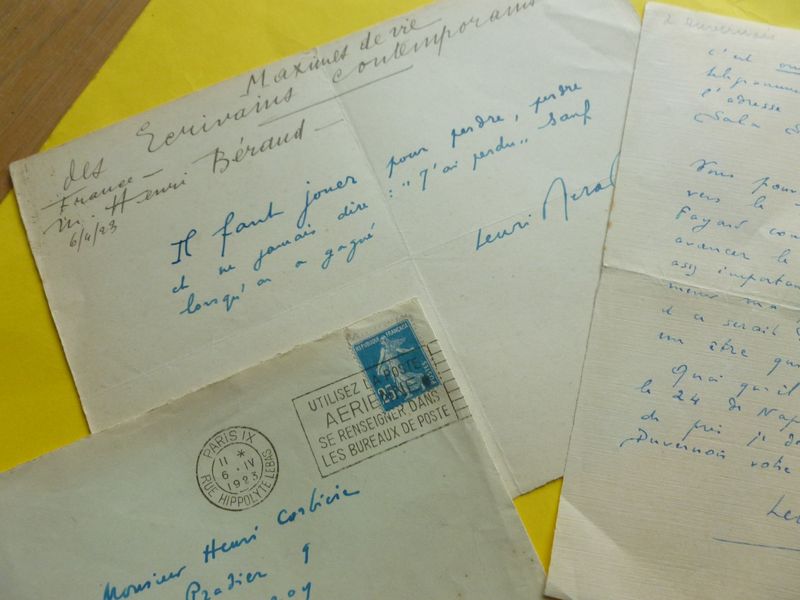 Maximes de vie
des Ecrivains contemporains
France
M. Henri Béraud
6/4/23
Il faut jouer pour perdre, perdre
et ne jamais dire : "J'ai perdu" sauf
lorsqu'on a gagné
Henri Béraud
REPUBLIQUE FRANÇAISE
25
UTILISEZ LA POSTE
AERIENNE
SE RENSEIGNER DANS
LES BUREAUX DE POSTE
PARIS IX
11 *
6 · IV
1923
RUE HIPPOLYTE LEBAS
Monsieur Henri Corbière
Pradier 9
c'est
l'adresse
Sala
Vous
vers le
Fayard
avancer le
assez important
il a serait
un être
Quoi qu'il
le 24 de
de je
Duvernois votre